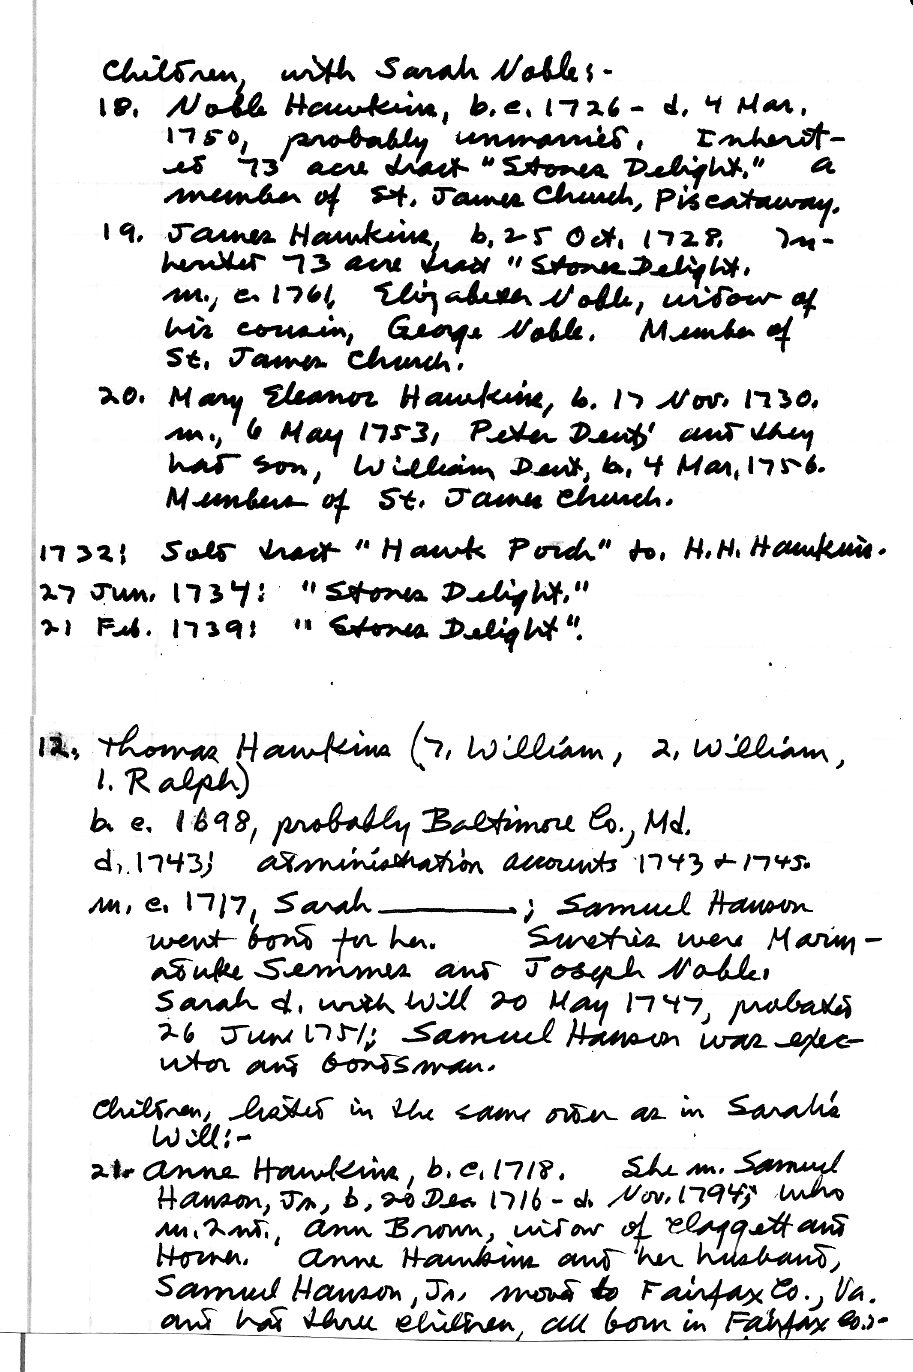 Children, with Sarah Noble:-
18. Noble Hawkins, b.c. 1726 - d. 4 Mar.
1750, probably unmarried. Inherit-
ed 73 acre tract "Stones Delight." A
member of St. James Church, Piscataway.
19. James Hawkins, b. 25 Oct. 1728. In-
herited 73 acre tract "Stones Delight.
m., c. 1761, Elizabeth Noble, widow of
his cousin, George Noble. Member of
St. James Church.
20. Mary Eleanor Hawkins, b. 17 Nov. 1730.
m., 6 May 1753, Peter Dent, and they
had son, William Dent, b. 4 Mar. 1756.
Members of St. James Church.
1732: Sold tract "Hawk Porch" to. H.H. Hawkins.
27 Jun. 1734: "Stones Delight."
21 Feb. 1739: "Stones Delight".
12. Thomas Hawkins (7. William, 2. William,
1. Ralph)
b. c. 1698, probably Baltimore Co., Md.
d. 1743; administration accounts 1743 + 1745.
m. c. 1717, Sarah ________; Samuel Hanson
went bond for her. Sureties were Marm-
aduke Semmes and Joseph Noble.
Sarah d. with Will 20 May 1747, probated
26 June 1751; Samuel Hanson was exec-
utor and bondsman.
Children, listed in the same order as in Sarah's
Will:-
21. Anne Hawkins, b. c. 1718. She m. Samuel
Hanson, Jr., b. 20 Dec. 1716 - d. Nov. 1794; who
m. 2nd., Ann Brown, widow of Claggett and
Horner. Anne Hawkins and her husband,
Samuel Hanson, Jr. moved to Fairfax Co., Va.
and had three children, all born in Fairfax Co.:-